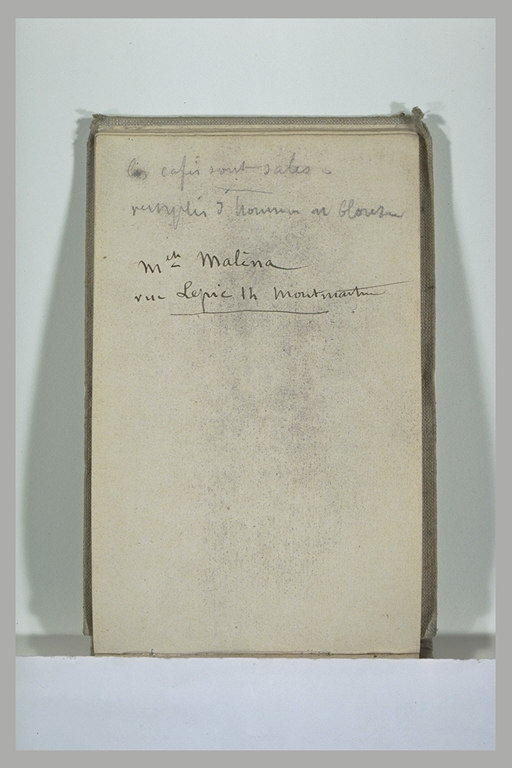 les cafés sont sales
remplis d'hommes en blouse
Melle Malina
rue Lepic 14 Montmartre